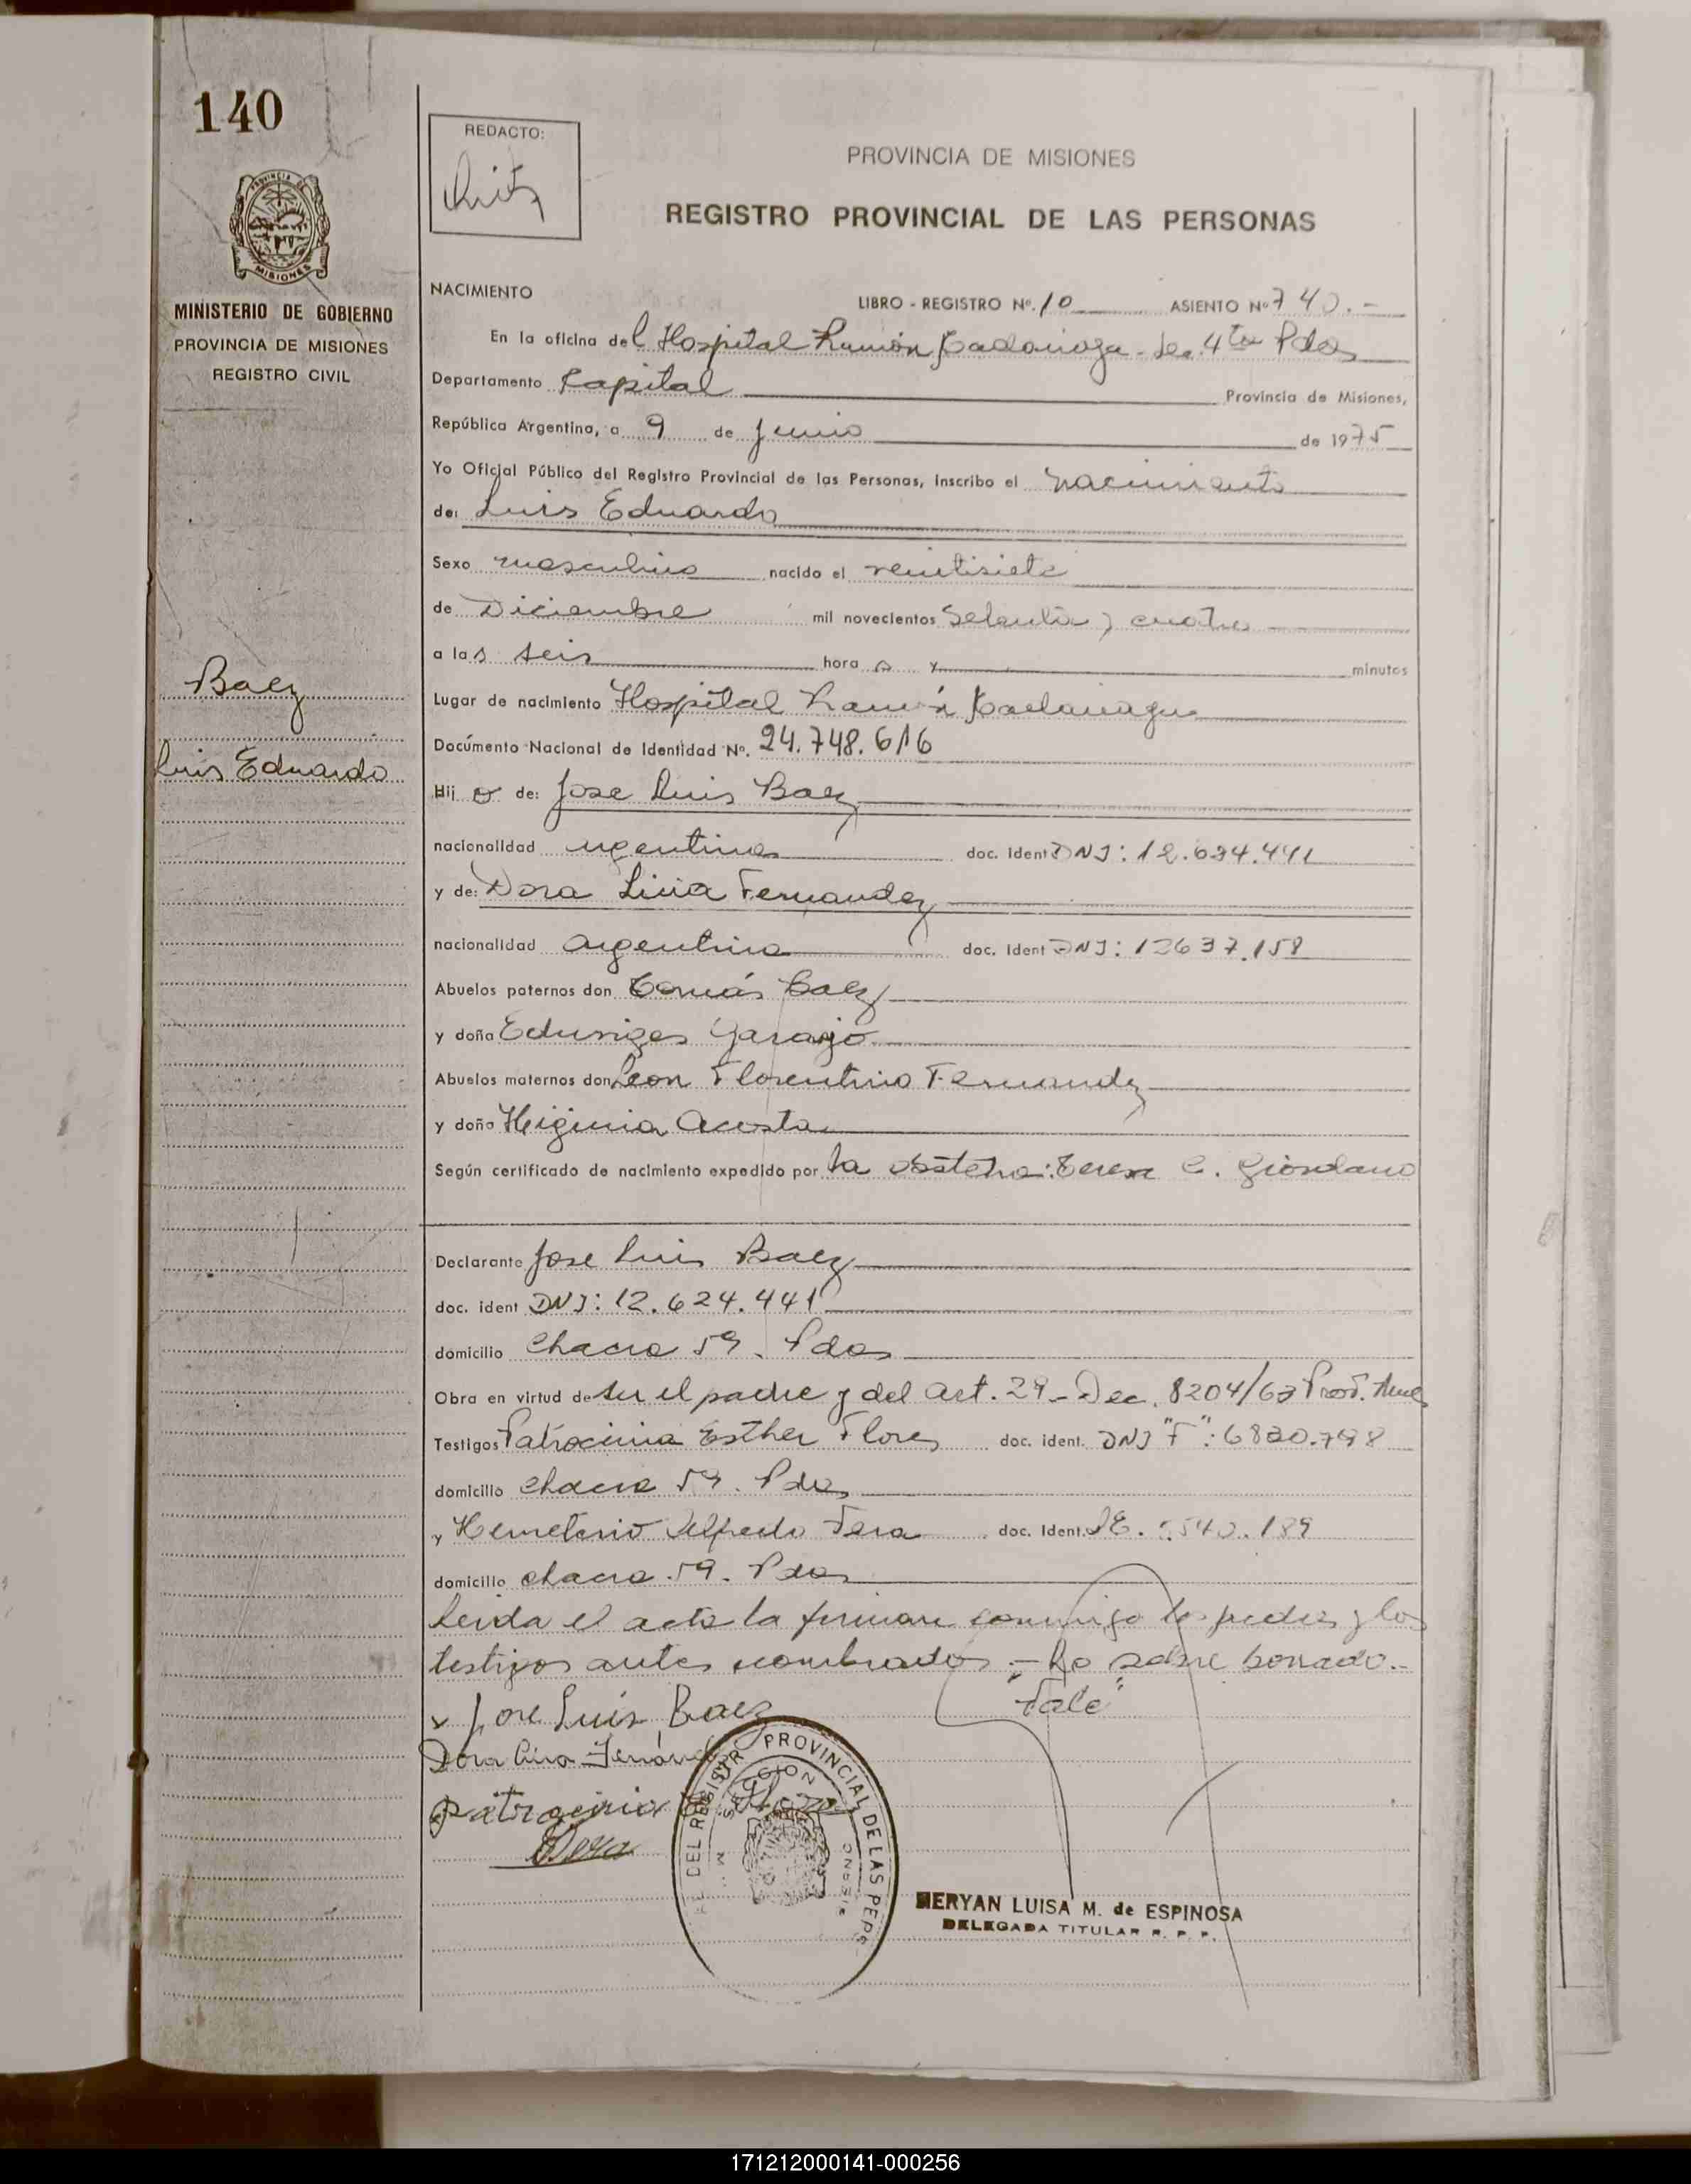 140
REDACTO:
PROVINCIA DE MISIONES
REGISTRO PROVINCIAL DE LAS PERSONAS
PROVINCIA DE
MISIONES
MINISTERIO DE GOBIERNO
PROVINCIA DE MISIONES
REGISTRO CIVIL
NACIMIENTO
LIBRO - REGISTRO Nº. 10 ASIENTO Nº 740.-
En la oficina del Hospital Ramón Madariaga - Sec. 4ta Pdas
Departamento Capital Provincia de Misiones,
República Argentina, a 9 de Junio de 1975
Yo Oficial Público del Registro Provincial de las Personas, inscribo el nacimiento
de: Luis Eduardo
Sexo masculino nacido el veintisiete
de Diciembre mil novecientos setenta y cuatro
a las seis horas y minutos
Baez
Luis Eduardo
Lugar de nacimiento Hospital Ramón Madariaga
Documento Nacional de Identidad Nº. 24.748.616
Hijo de: Jose Luis Baez
nacionalidad argentina doc. Ident DNI: 12.624.441
y de: Dora Licia Fernandez
nacionalidad argentina doc. Ident DNI: 12637.158
Abuelos paternos don Tomás Baez
y doña Eduviges
Abuelos maternos don Leon Florentino Fernandez
y doña Higinia Acosta
Según certificado de nacimiento expedido por la obstetra: Teresa C. Giordano
Declarante Jose Luis Baez
doc. ident DNI: 12.624.441
domicilio Chacra 59. Pdas
Obra en virtud de ser el padre y del Art. 29 - Dec. 8204/63
Testigos Patrocinia Esther Flores doc. ident. DNI "F": 6820.798
domicilio chacra 59. Pdas
y Hemeterio Alfredo Vera doc. Ident. 189
domicilio chacra 59. Pdas
Leida el acta la firman conmigo los padres y los
testigos antes nombrados - Lo sobre borrado.-
"Vale"
x Jose Luis Baez
Dora Licia Fernánd
Patrocinia Flores
Vera
DEL REGISTR PROVINCIAL DE LAS PERS
MERYAN LUISA M. de ESPINOSA
DELEGADA TITULAR R. P. P.
171212000141-000256